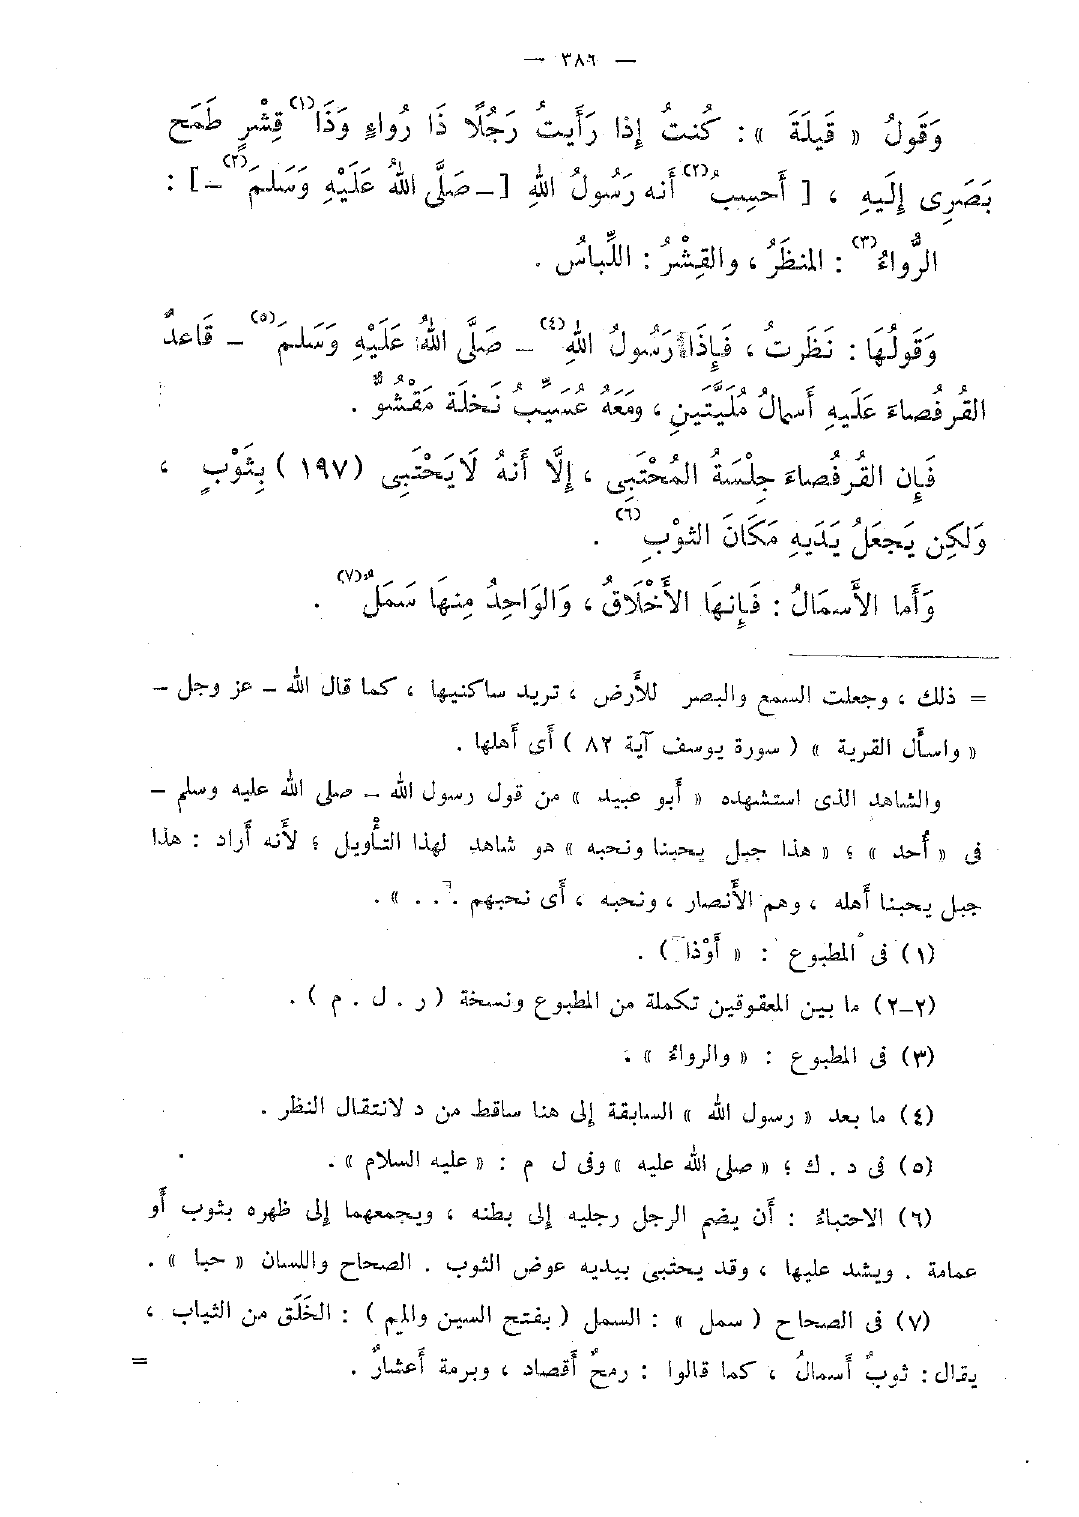 — ٣٨٦ —
وَقَولُ « قَيلَةَ » : كُنتُ إِذا رَأَيتُ رَجُلًا ذَا رُواءٍ وَذَا (١) قِشْرٍ طَمَح
بَصَرِى إِلَيهِ ، [ أَحسِبُ (٢) أَنه رَسُولُ اللهِ [ – صَلَّى اللهُ عَلَيْهِ وَسَلمَ (٢) – ] :
الرُّواءُ (٣) : المنظَرُ ، والقِشْرُ : اللِّباسُ .
وَقَولُهَا : نَظَرتُ ، فَإِذَا رَسُولُ اللهِ (٤) – صَلَّى اللهُ عَلَيْهِ وَسَلمَ (٥) – قَاعدٌ
القُرفُصاءَ عَلَيهِ أَسمالُ مُلَيَّتَينِ ، ومَعَهُ عُسَيِّبُ نَخلَة مَقْشُوٌّ .
فَإِن القُرفُصاءَ جِلْسَةُ المُحْتَبِى ، إِلَّا أَنهُ لَا يَحْتَبِى ( ١٩٧ ) بِثَوْبٍ ،
وَلكِن يَجعَلُ يَدَيهِ مَكَانَ الثوْبِ (٦) .
وَأَما الأَسمَالُ : فَإِنهَا الأَخْلَاقُ ، وَالوَاحِدُ مِنهَا سَمَلٌ (٧) .
= ذلك ، وجعلت السمع والبصر للأَرض ، تريد ساكنيها ، كما قال الله – عز وجل –
« واسأَل القرية » ( سورة يوسف آية ٨٢ ) أَى أَهلها .
والشاهد الذى استشهده « أَبو عبيد » من قول رسول الله – صلى الله عليه وسلم –
فى « أُحد » ؛ « هذا جبل يحبنا ونحبه » هو شاهد لهذا التأْويل ؛ لأَنه أَراد : هذا
جبل يحبنا أَهله ، وهم الأَنصار ، ونحبه ، أَى نحبهم . . . » .
(١) فى المطبوع : « أَوْذا ) .
(٢–٢) ما بين المعقوقين تكملة من المطبوع ونسخة ( ر . ل . م ) .
(٣) فى المطبوع : « والرواءُ » .
(٤) ما بعد « رسول الله » السابقة إلى هنا ساقط من د لانتقال النظر .
(٥) فى د . ك ؛ « صلى الله عليه » وفى ل م : « عليه السلام » .
(٦) الاحتباءُ : أَن يضم الرجل رجليه إلى بطنه ، ويجمعهما إلى ظهره بثوب أَو
عمامة . ويشد عليها ، وقد يحتبى بيديه عوض الثوب . الصحاح واللسان « حبا » .
(٧) فى الصحاح ( سمل » : السمل ( بفتح السين والميم ) : الخَلَق من الثياب ،
يقال : ثوبٌ أَسمالُ ، كما قالوا : رمحٌ أَقصاد ، وبرمة أَعشارٌ . =